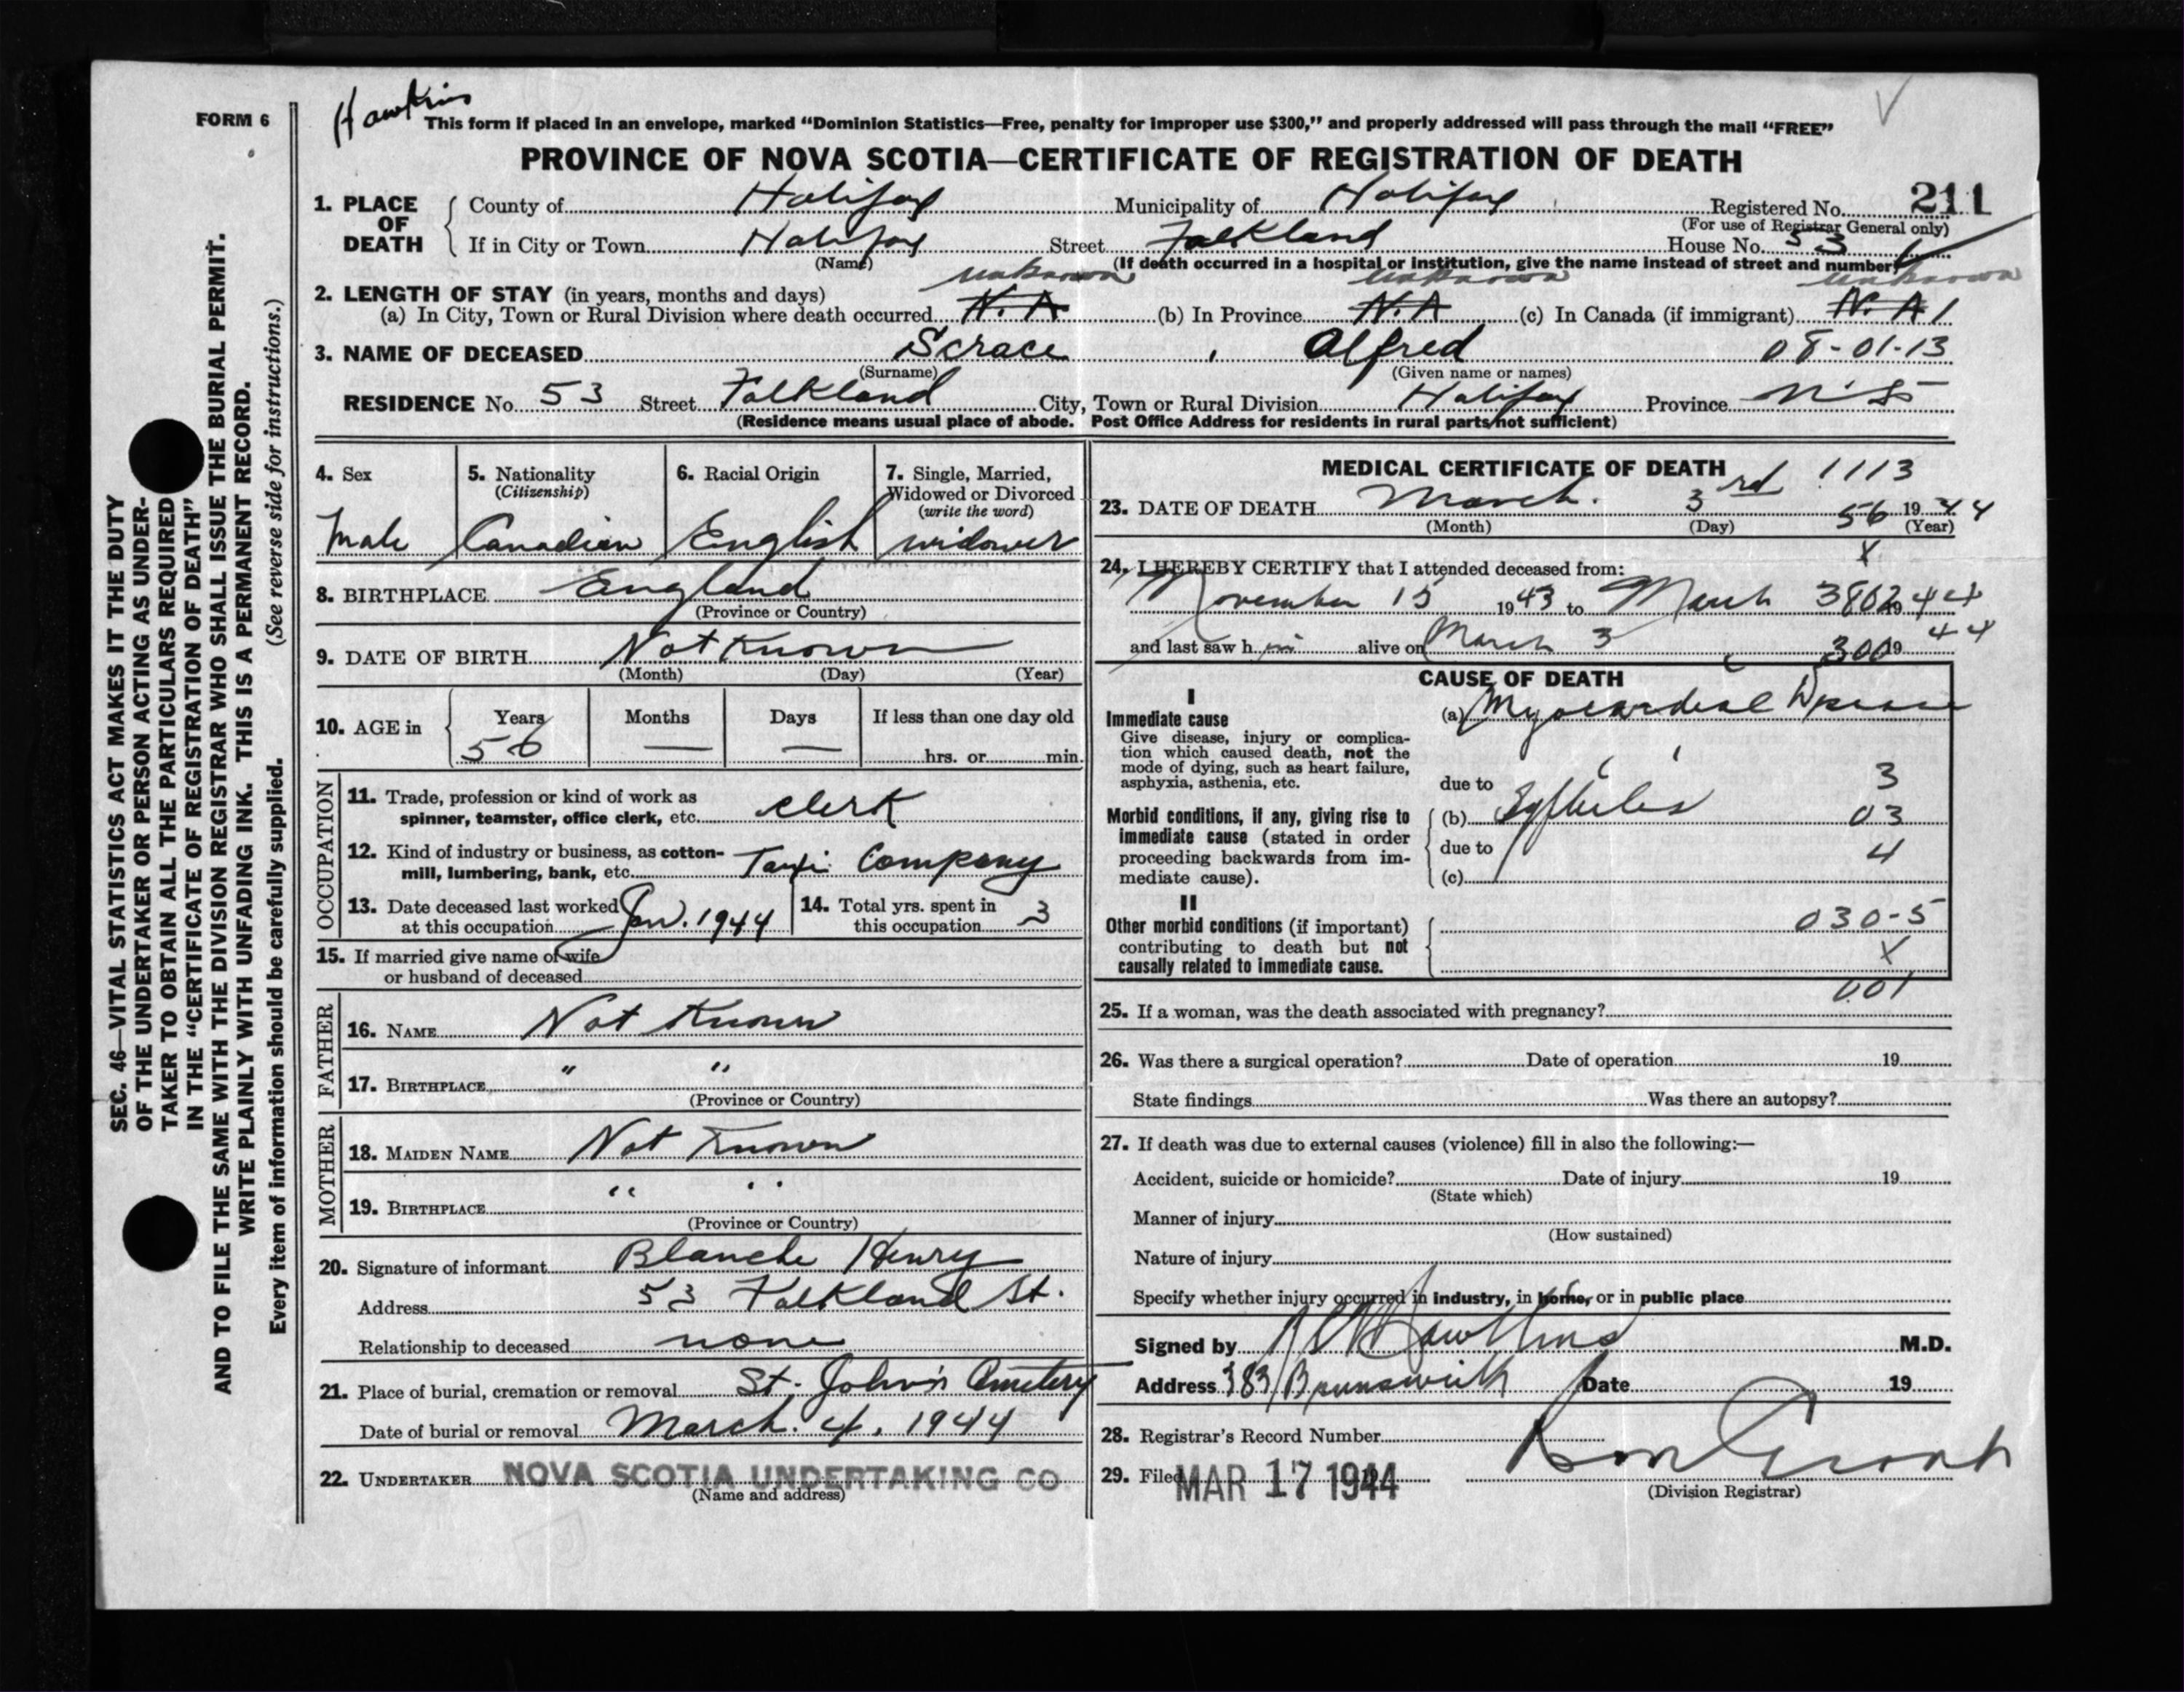 FORM 6
Hawkins
This form if placed in an envelope, marked "Dominion Statistics—Free, penalty for improper use $300," and properly addressed will pass through the mail "FREE"
PROVINCE OF NOVA SCOTIA—CERTIFICATE OF REGISTRATION OF DEATH
1. PLACE OF DEATH
County of Halifax Municipality of Halifax Registered No. 211
(For use of Registrar General only)
If in City or Town Halifax Street Falkland House No. 53
(Name) (If death occurred in a hospital or institution, give the name instead of street and number)
unknown unknown unknown
2. LENGTH OF STAY (in years, months and days)
(a) In City, Town or Rural Division where death occurred N.A (b) In Province N.A (c) In Canada (if immigrant) N.A 1
3. NAME OF DECEASED Scrace, Alfred 08-01-13
(Surname) (Given name or names)
RESIDENCE No. 53 Street Falkland City, Town or Rural Division Halifax Province N.S
(Residence means usual place of abode. Post Office Address for residents in rural parts not sufficient)
4. Sex
Male
5. Nationality
(Citizenship)
Canadian
6. Racial Origin
English
7. Single, Married,
Widowed or Divorced
(write the word)
widower
8. BIRTHPLACE England
(Province or Country)
9. DATE OF BIRTH Not Known
(Month) (Day) (Year)
10. AGE in
Years Months Days If less than one day old
56 — — hrs. or min.
OCCUPATION
11. Trade, profession or kind of work as
spinner, teamster, office clerk, etc. Clerk
12. Kind of industry or business, as cotton-
mill, lumbering, bank, etc. Taxi Company
13. Date deceased last worked
at this occupation Jan. 1944
14. Total yrs. spent in
this occupation 3
15. If married give name of wife
or husband of deceased
FATHER
16. NAME Not Known
17. BIRTHPLACE " "
(Province or Country)
MOTHER
18. MAIDEN NAME Not Known
19. BIRTHPLACE " "
(Province or Country)
20. Signature of informant Blanche Henry
Address 53 Falkland St.
Relationship to deceased none
21. Place of burial, cremation or removal St. John's Cemetery
Date of burial or removal March. 4, 1944
22. UNDERTAKER NOVA SCOTIA UNDERTAKING CO.
(Name and address)
MEDICAL CERTIFICATE OF DEATH
1113
23. DATE OF DEATH March. 3rd 56 1944
(Month) (Day) (Year)
X
24. I HEREBY CERTIFY that I attended deceased from:
November 15 1943 to March 3 802 1944
and last saw him alive on March 3 300 1944
CAUSE OF DEATH
I
Immediate cause
Give disease, injury or complica-
tion which caused death, not the
mode of dying, such as heart failure,
asphyxia, asthenia, etc.
(a) Myocardial Disease
due to 3
Morbid conditions, if any, giving rise to
immediate cause (stated in order
proceeding backwards from im-
mediate cause).
(b) Syphilis 03
due to 4
(c)
II
Other morbid conditions (if important)
contributing to death but not
causally related to immediate cause.
030-5
X
001
25. If a woman, was the death associated with pregnancy?
26. Was there a surgical operation? Date of operation 19
State findings Was there an autopsy?
27. If death was due to external causes (violence) fill in also the following:—
Accident, suicide or homicide? Date of injury 19
(State which)
Manner of injury
(How sustained)
Nature of injury
Specify whether injury occurred in industry, in home, or in public place
Signed by Hawkins M.D.
Address 383 Brunswick Date 19
28. Registrar's Record Number
29. Filed MAR 17 1944
(Division Registrar)
SEC. 46—VITAL STATISTICS ACT MAKES IT THE DUTY
OF THE UNDERTAKER OR PERSON ACTING AS UNDER-
TAKER TO OBTAIN ALL THE PARTICULARS REQUIRED
IN THE "CERTIFICATE OF REGISTRATION OF DEATH"
AND TO FILE THE SAME WITH THE DIVISION REGISTRAR WHO SHALL ISSUE THE BURIAL PERMIT.
WRITE PLAINLY WITH UNFADING INK. THIS IS A PERMANENT RECORD.
Every item of information should be carefully supplied. (See reverse side for instructions.)